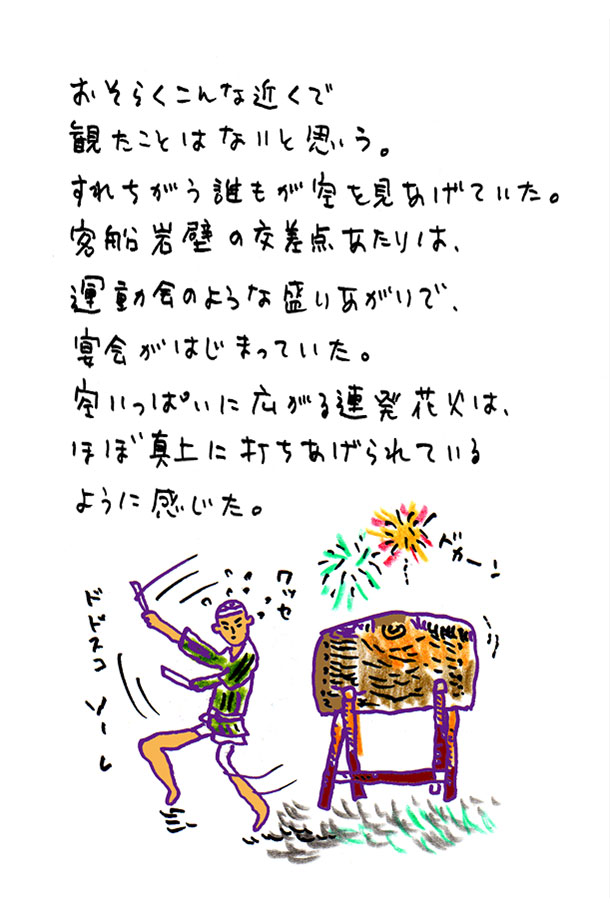 おそらくこんな近くで
観たことはないと思いう。
すれちがう誰もが空を見あげていた。
客船岩壁の交差点あたりは、
運動会のような盛りあがりで、
宴会がはじまっていた。
空いっぱいに広がる連発花火は、
ほぼ真上に打ちあげられている
ように感じた。
ドカーン
ワッセ
ドドスコ
ソーレ